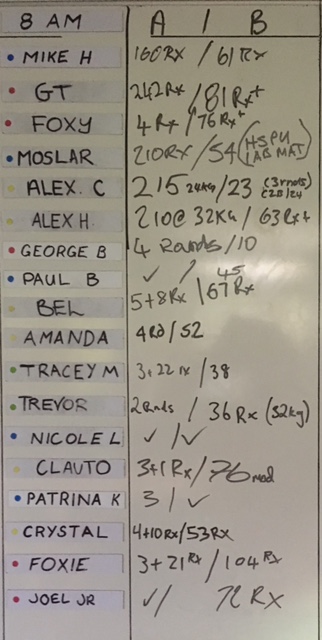 8 AM A / B
MIKE H 160 RX / 61 RX
GT 242 Rx / 81 Rx+
FOXY 4 Rx / 76 Rx+
MOSLAR 210 RX / 54 (HSPU LAB MAT)
ALEX. C 215 24KG / 23
ALEX H. 210 @ 32KG / 63 Rx+
GEORGE B 4 Rounds / 10
PAUL B ✓ / 45
BEL 5+8 Rx / 67 Rx
AMANDA 4 RD / 52
TRACEY M 3+22 rx / 38
TREVOR 2 Rnds / 36 Rx (32kg)
NICOLE L ✓ / ✓
CLAUTO 3+1 Rx / 76 mod
PATRINA K 3 / ✓
CRYSTAL 4+10 Rx / 53 RX
FOXIE 3+21 Rx / 104 Rx
JOEL JR ✓ / 72 RX